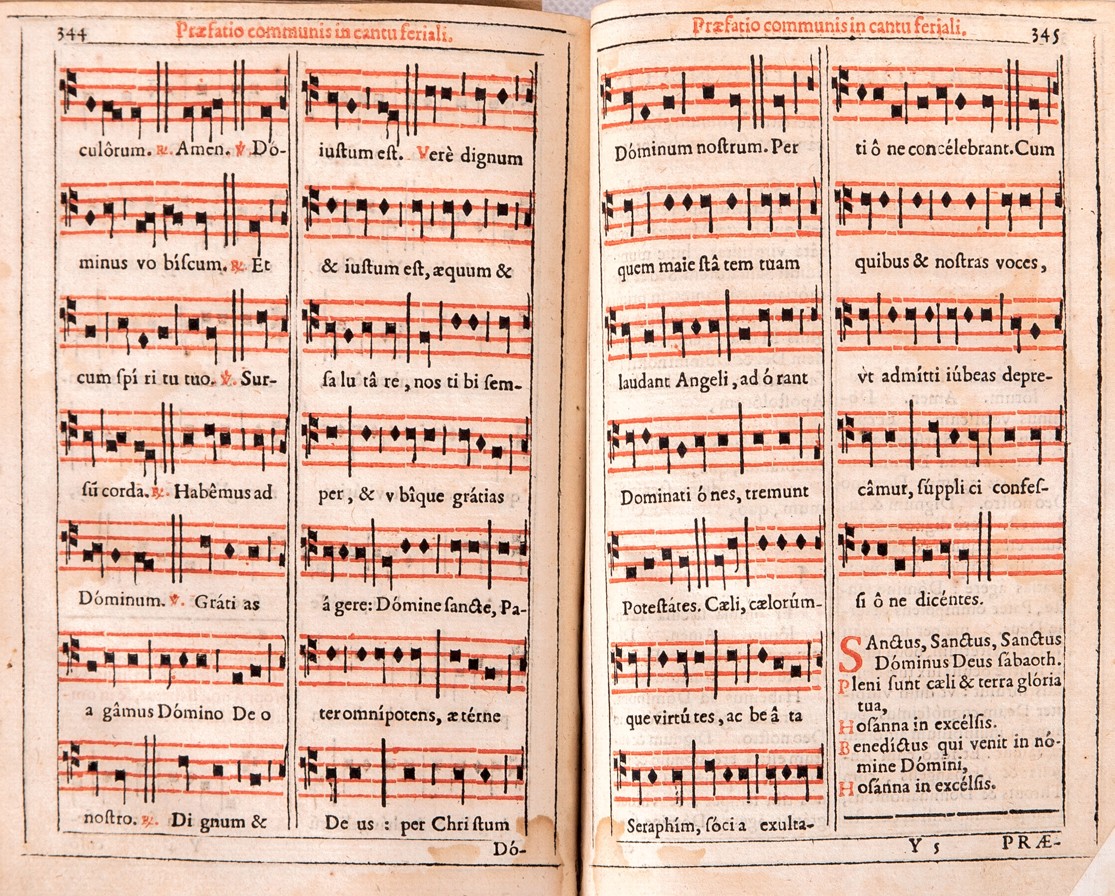 344
Præfatio communis in cantu feriali.
culôrum. ℟. Amen. ℣. Dó-
minus vo bíſcum. ℟. Et
cum ſpí ri tu tuo. ℣. Sur-
ſū corda. ℟. Habêmus ad
Dóminum. ℣. Gráti as
a gâmus Dómino De o
noſtro. ℟. Di gnum &
iuſtum eſt. Verè dignum
& iuſtum eſt, æquum &
ſa lu tâ re, nos ti bi ſem-
per, & v bîque grátias
á gere: Dómine ſancte, Pa-
ter omnípotens, æ térne
De us : per Chri ſtum
Dó-
Præfatio communis in cantu feriali.
345
Dóminum noſtrum. Per
quem maie ſtâ tem tuam
laudant Angeli, ad ó rant
Dominati ó nes, tremunt
Poteſtátes. Cæli, cælorúm-
que virtú tes, ac be â ta
Seraphím, ſóci a exulta-
ti ô ne concélebrant. Cum
quibus & noſtras voces,
vt admítti iúbeas depre-
câmur, ſúppli ci confeſ-
ſi ô ne dicéntes.
SAnctus, Sanctus, Sanctus
Dóminus Deus ſábaoth.
Pleni ſunt cæli & terra glória
tua,
Hoſánna in excélſis.
Benedíctus qui venit in nó-
mine Dómini,
Hoſánna in excélſis.
Y 5
PRÆ-